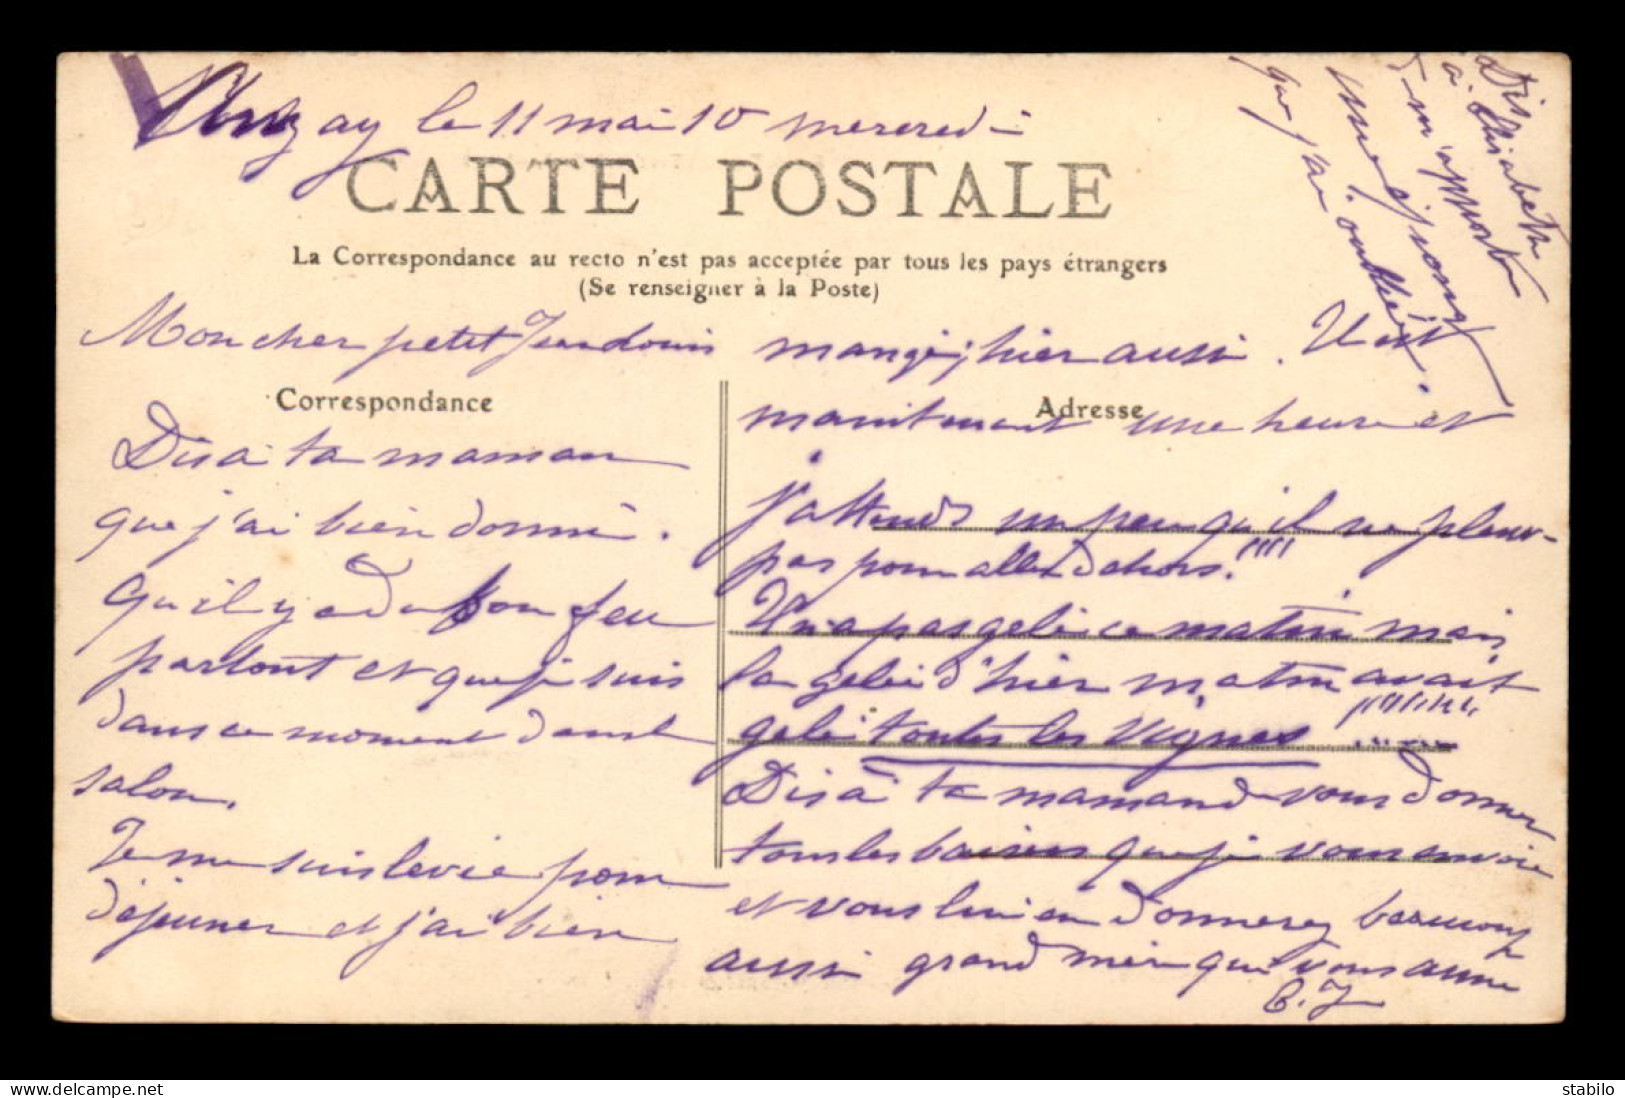 ay le 11 mai 10 mercredi
CARTE POSTALE
La Correspondance au recto n'est pas acceptée par tous les pays étrangers
(Se renseigner à la Poste)
Dis
a Elisabeth
d m'apporter
une éponge
que j'ai oubliée.
Mon cher petit Jean Louis
Correspondance
Dis à ta maman
que j'ai bien dormi.
Qu'il y a du bon feu
partout et que je suis
dans ce moment dans l
salon.
Je me suis levée pour
déjeuner et j'ai bien
mangé; hier aussi. Il est
Adresse
maintenant une heure et
j'attends un peu qu'il ne pleuve
pas pour aller dehors!!!!!
Il n'a pas gelé ce matin mais
la gelée d'hier matin avait
gelé toutes les vignes !!!!!!!
Dis à ta maman de vous donner
tous les baisers que je vous envoie
et vous lui en donnerez beaucoup
aussi grand mère qui vous aime
B. J
stabilo